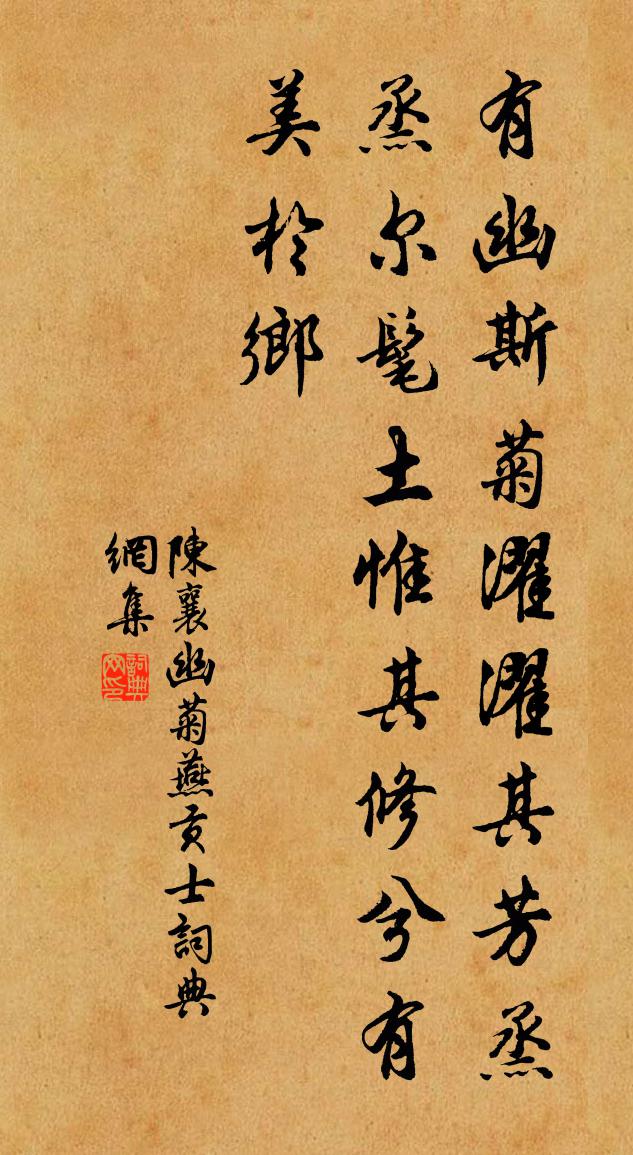 有幽斯菊濯濯其芳烝
烝尔髦士惟其修兮有
美於鄉
陳襄幽菊燕貢士詞典
網集
詞典網印